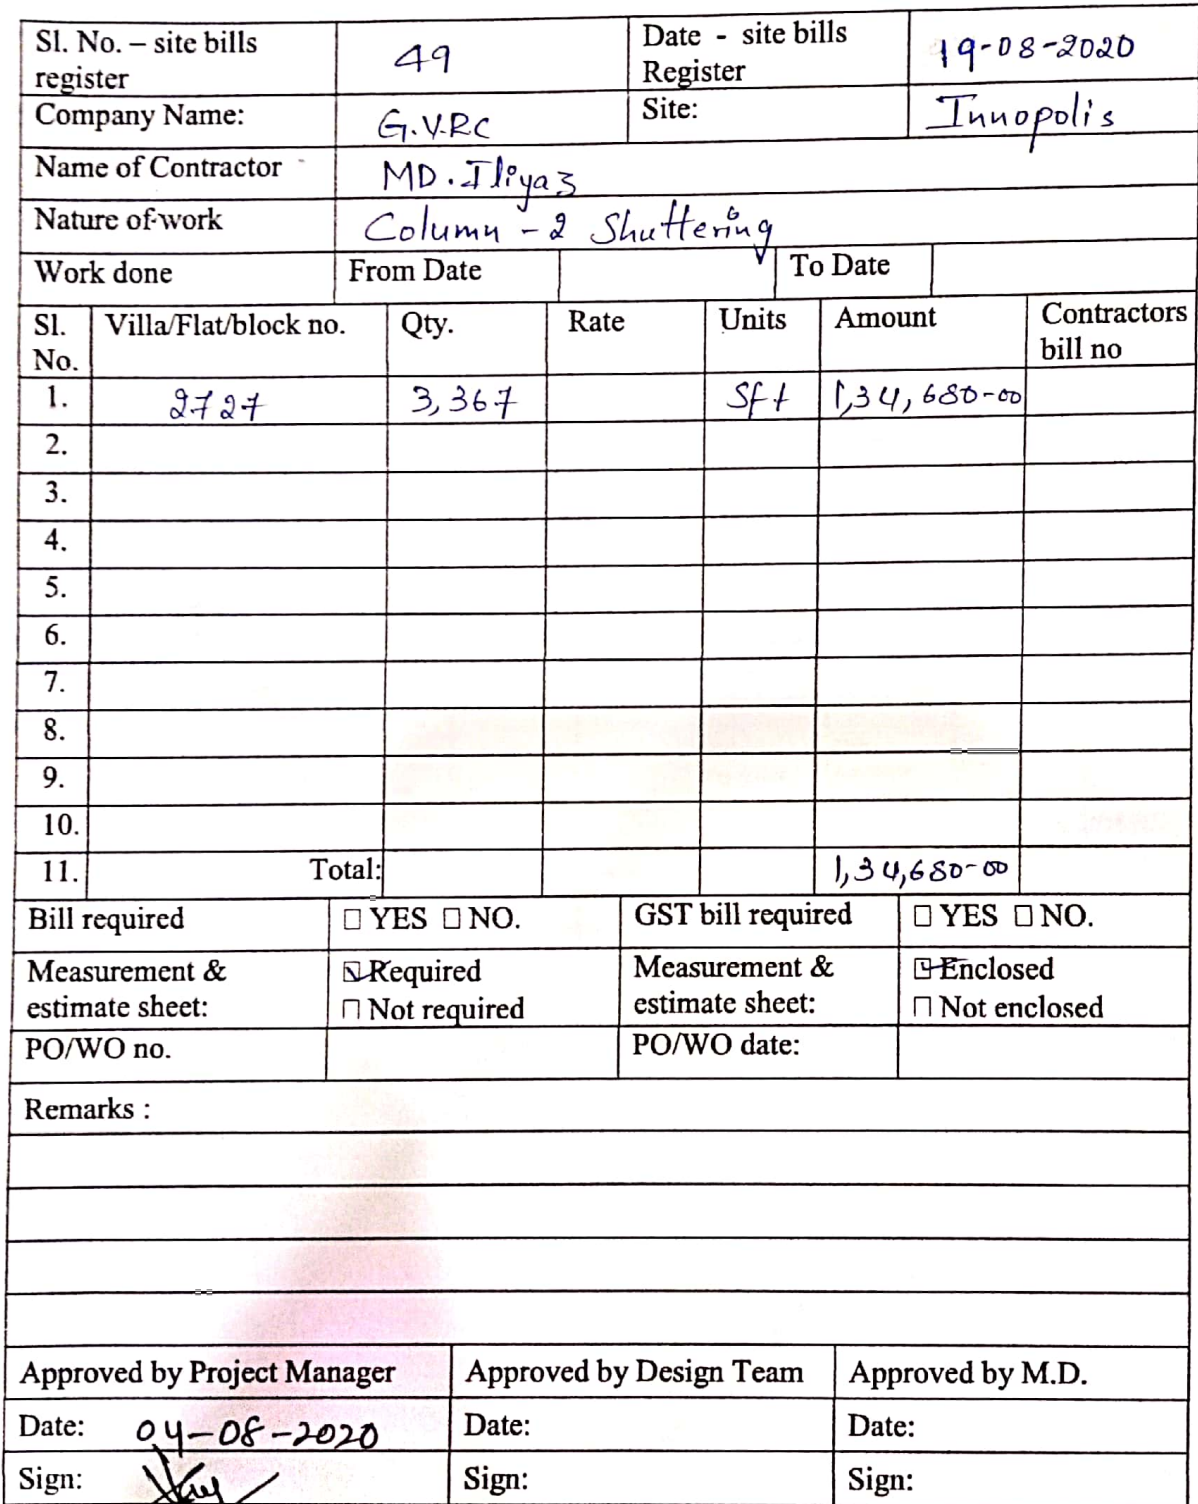 Sl. No. – site bills register 49 Date - site bills Register 19-08-2020
Company Name: G.V.R.C Site: Innopolis
Name of Contractor MD. Iliyaz
Nature of work Column - 2 Shuttering
Work done From Date To Date
Sl. No. Villa/Flat/block no. Qty. Rate Units Amount Contractors bill no
1. 2727 3,367 Sft 1,34,680-00
2.
3.
4.
5.
6.
7.
8.
9.
10.
11. Total: 1,34,680-00
Bill required □ YES □ NO. GST bill required □ YES □ NO.
Measurement & estimate sheet: ☑ Required □ Not required Measurement & estimate sheet: ☑ Enclosed □ Not enclosed
PO/WO no. PO/WO date:
Remarks :
Approved by Project Manager Approved by Design Team Approved by M.D.
Date: 04-08-2020 Date: Date:
Sign: Sign: Sign: